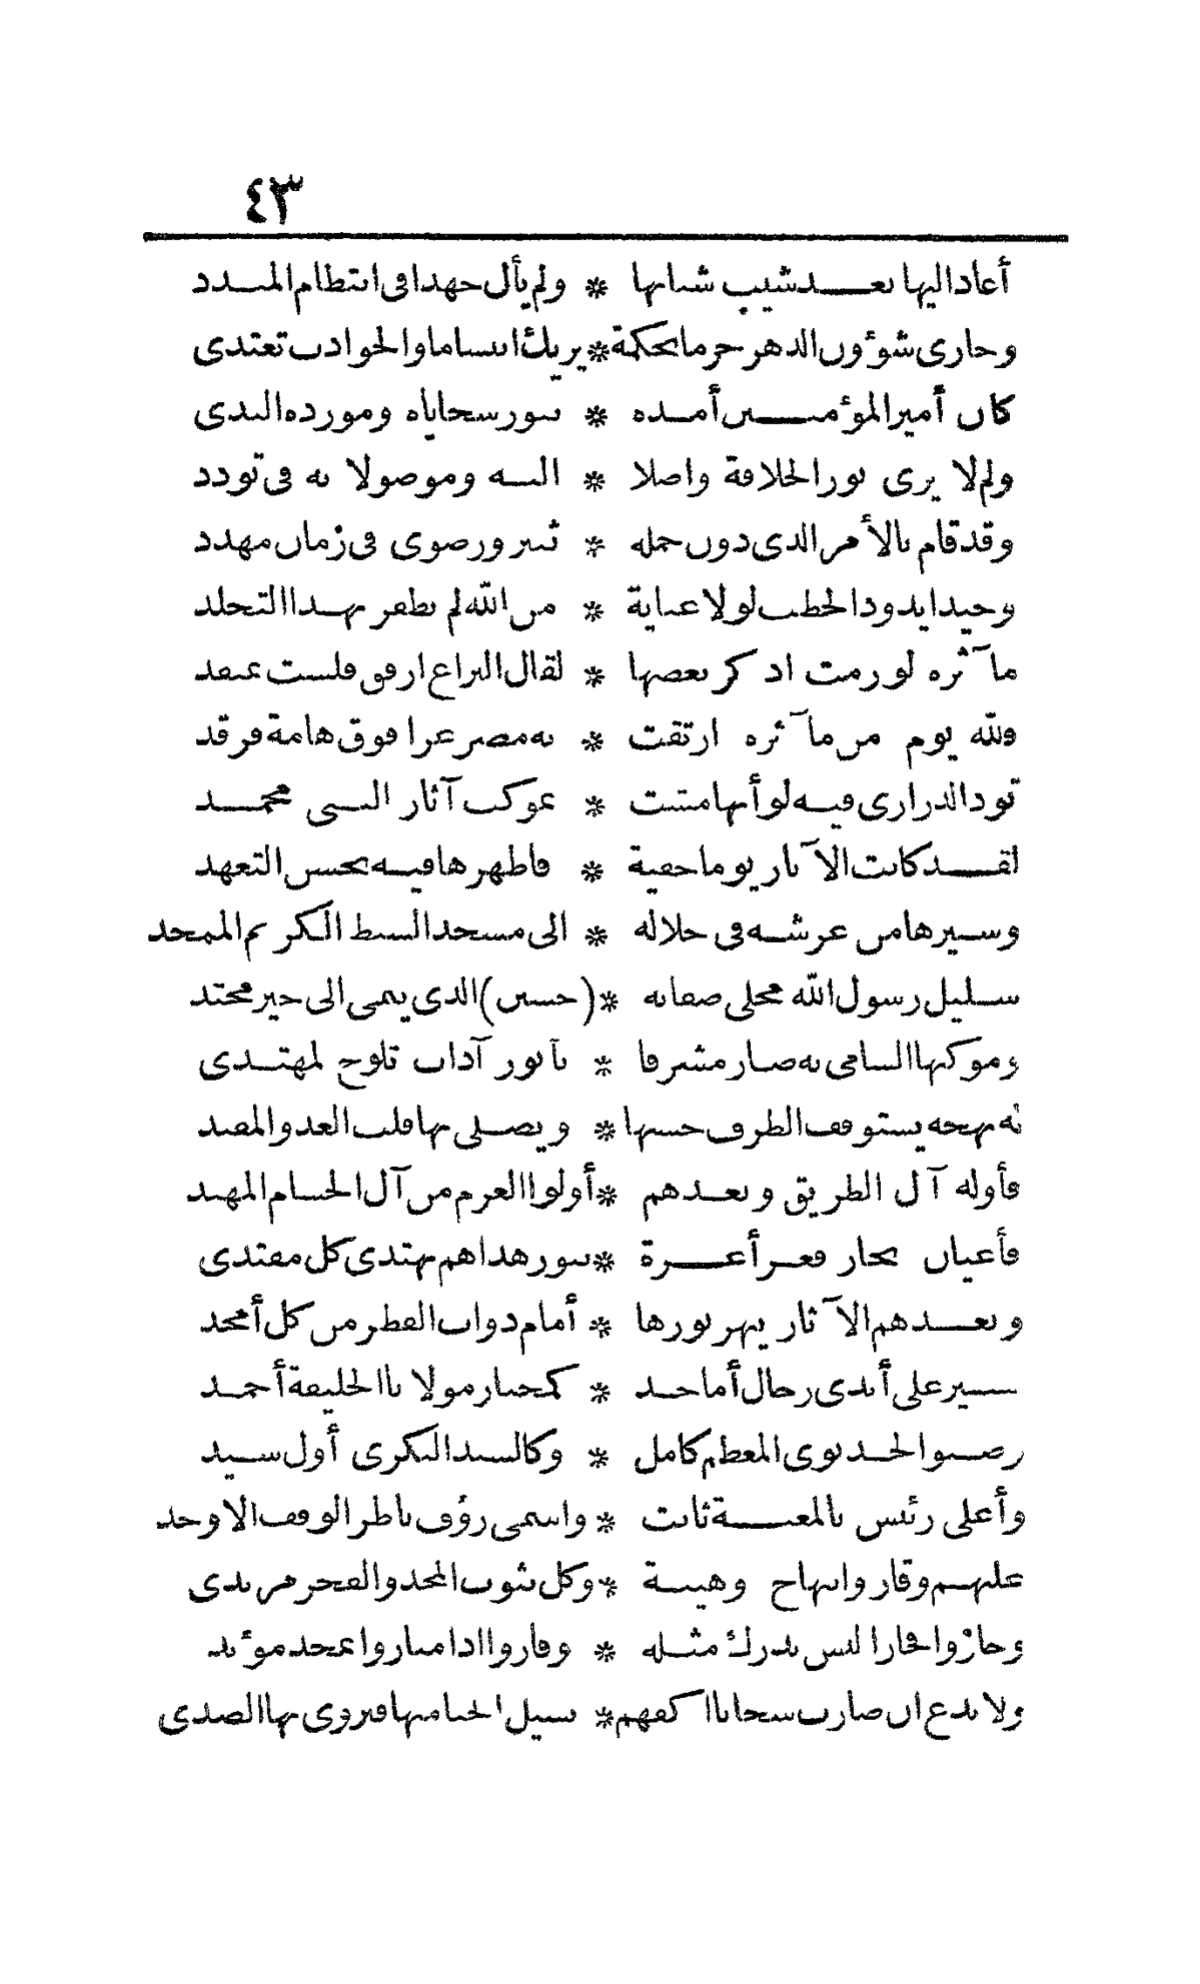 ٤٣
أعاد اليها بعد شيب شبابها * ولم يأل جهدا فى انتظام المبدد
وجارى شؤون الدهر حزما بحكمة * يريك ابتساما والحوادث تعتدى
كان أمير المؤمنين أمده * بنور سجاياه ومورده الندى
ولم لا يرى نور الخلافة واصلا * اليه وموصولا به فى تودد
وقد قام بالأمر الذى دون حمله * ثبير ورضوى فى زمان مهدد
وحيدا يذود الخطب لولا عناية * من الله لم يظفر بهذا التجلد
مآثره لو رمت اذكر بعضها * لقال اليراع ارفق فلست بمنفد
ولله يوم من مآثره ارتقت * به مصر عزا فوق هامة فرقد
تود الدرارى فيه لو أنها مشت * بموكب آثار النبى محمد
لقد كانت الآثار يوما خفية * فاظهرها فيه بحسن التعهد
وسيرها من عرشه فى جلاله * الى مسجد السبط الكريم الممجد
سليل رسول الله مجلى صفاته * (حسين) الذى ينمى الى خير محتد
وموكبها السامى به صار مشرفا * بأنور آداب تلوح لمهتدى
له بهجة يستوقف الطرف حسنها * ويصلى بها قلب العدو المفند
فأوله آل الطريق وبعدهم * أولوا العزم من آل الحسام المهند
فأعيان بحار فغر أعزة * بنور هداهم يهتدى كل مقتدى
وبعدهم الآثار يبهر نورها * أمام ذوات القطر من كل أمجد
تسير على أيدى رجال أماجد * كمختار مولانا الخليفة أحمد
رصيوا الخديوى المعظم كامل * وكالسيد البكرى أول سيد
وأعلى رئيس بالمعية ثابت * واسمى رؤف ناظر الوقف الاوحد
عليهم وقار وابتهاج وهيبة * وكل بثوب المجد والفخر مرتدى
وحازوا فخارا ليس يدرك مثله * وفازوا اذا امتازوا بمجد مؤبد
ولا بدع ان صارت سحابا اكفهم * تسيل الحيا منها فيروى بها الصدى